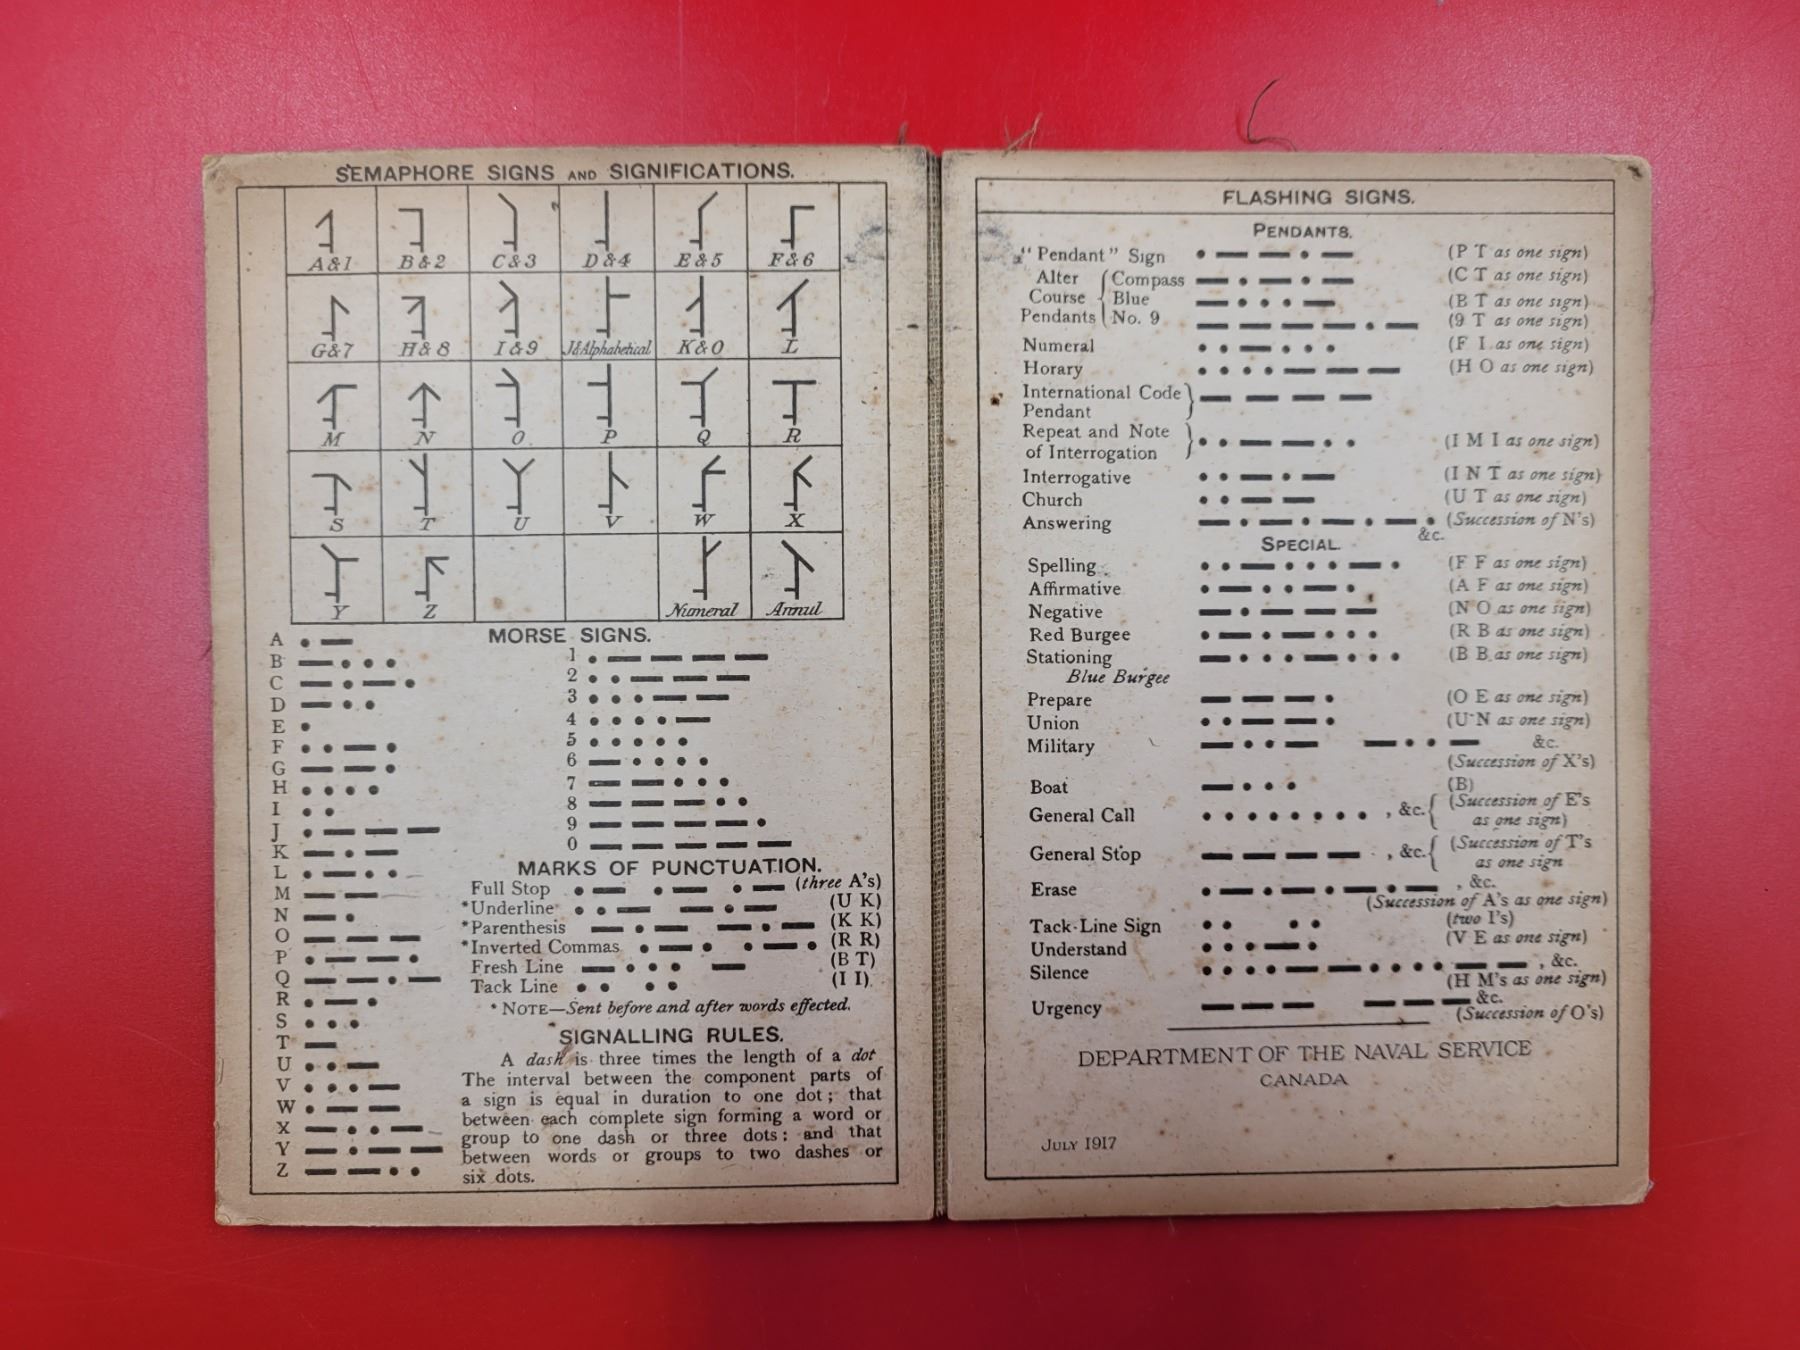 SEMAPHORE SIGNS AND SIGNIFICATIONS.
A&1 B&2 C&3 D&4 E&5 F&6
G&7 H&8 I&9 J&Alphabetical K&0 L
M N O P Q R
S T U V W X
Y Z Numeral Annul
MORSE SIGNS.
A • —
B — • • •
C — • — •
D — • •
E •
F • • — •
G — — •
H • • • •
I • •
J • — — —
K — • —
L • — • •
M — —
N — •
O — — —
P • — — •
Q — — • —
R • — •
S • • •
T —
U • • —
V • • • —
W • — —
X — • • —
Y — • — —
Z — — • •
1 • — — — —
2 • • — — —
3 • • • — —
4 • • • • —
5 • • • • •
6 — • • • •
7 — — • • •
8 — — — • •
9 — — — — •
0 — — — — —
MARKS OF PUNCTUATION.
Full Stop • — • — • — (three A's)
*Underline • • — — • — (U K)
*Parenthesis — • — — • — (K K)
*Inverted Commas • — • • — • (R R)
Fresh Line — • • • — (B T)
Tack Line • • • • (I I).
* NOTE—Sent before and after words effected.
SIGNALLING RULES.
A dash is three times the length of a dot
The interval between the component parts of
a sign is equal in duration to one dot; that
between each complete sign forming a word or
group to one dash or three dots: and that
between words or groups to two dashes or
six dots.
FLASHING SIGNS.
PENDANTS.
"Pendant" Sign • — — • — (P T as one sign)
Alter Compass — • — • — (C T as one sign)
Course Blue — • • • — (B T as one sign)
Pendants No. 9 — — — — • — (9 T as one sign)
Numeral • • — • • • (F I as one sign)
Horary • • • • — — — (H O as one sign)
International Code — — — —
Pendant
Repeat and Note • • — — • • (I M I as one sign)
of Interrogation
Interrogative • • — • — (I N T as one sign)
Church • • — — (U T as one sign)
Answering — • — • — • — • (Succession of N's)
&c.
SPECIAL.
Spelling • • — • • • — • (F F as one sign)
Affirmative • — • • — • (A F as one sign)
Negative — • — — — (N O as one sign)
Red Burgee • — • — • • • (R B as one sign)
Stationing — • • • — • • • (B B as one sign)
Blue Burgee
Prepare — — — • (O E as one sign)
Union • • — — • (U N as one sign)
Military — • • — — • • — &c.
(Succession of X's)
Boat — • • • (B)
General Call • • • • • • • • , &c. (Succession of E's
as one sign)
General Stop — — — — , &c. (Succession of T's
as one sign
Erase • — • — • — • — , &c.
(Succession of A's as one sign)
Tack-Line Sign • • • • (two I's)
Understand • • • — • (V E as one sign)
Silence • • • • — — • • • • — — , &c.
(H M's as one sign)
Urgency — — — — — — &c.
(Succession of O's)
DEPARTMENT OF THE NAVAL SERVICE
CANADA
JULY 1917